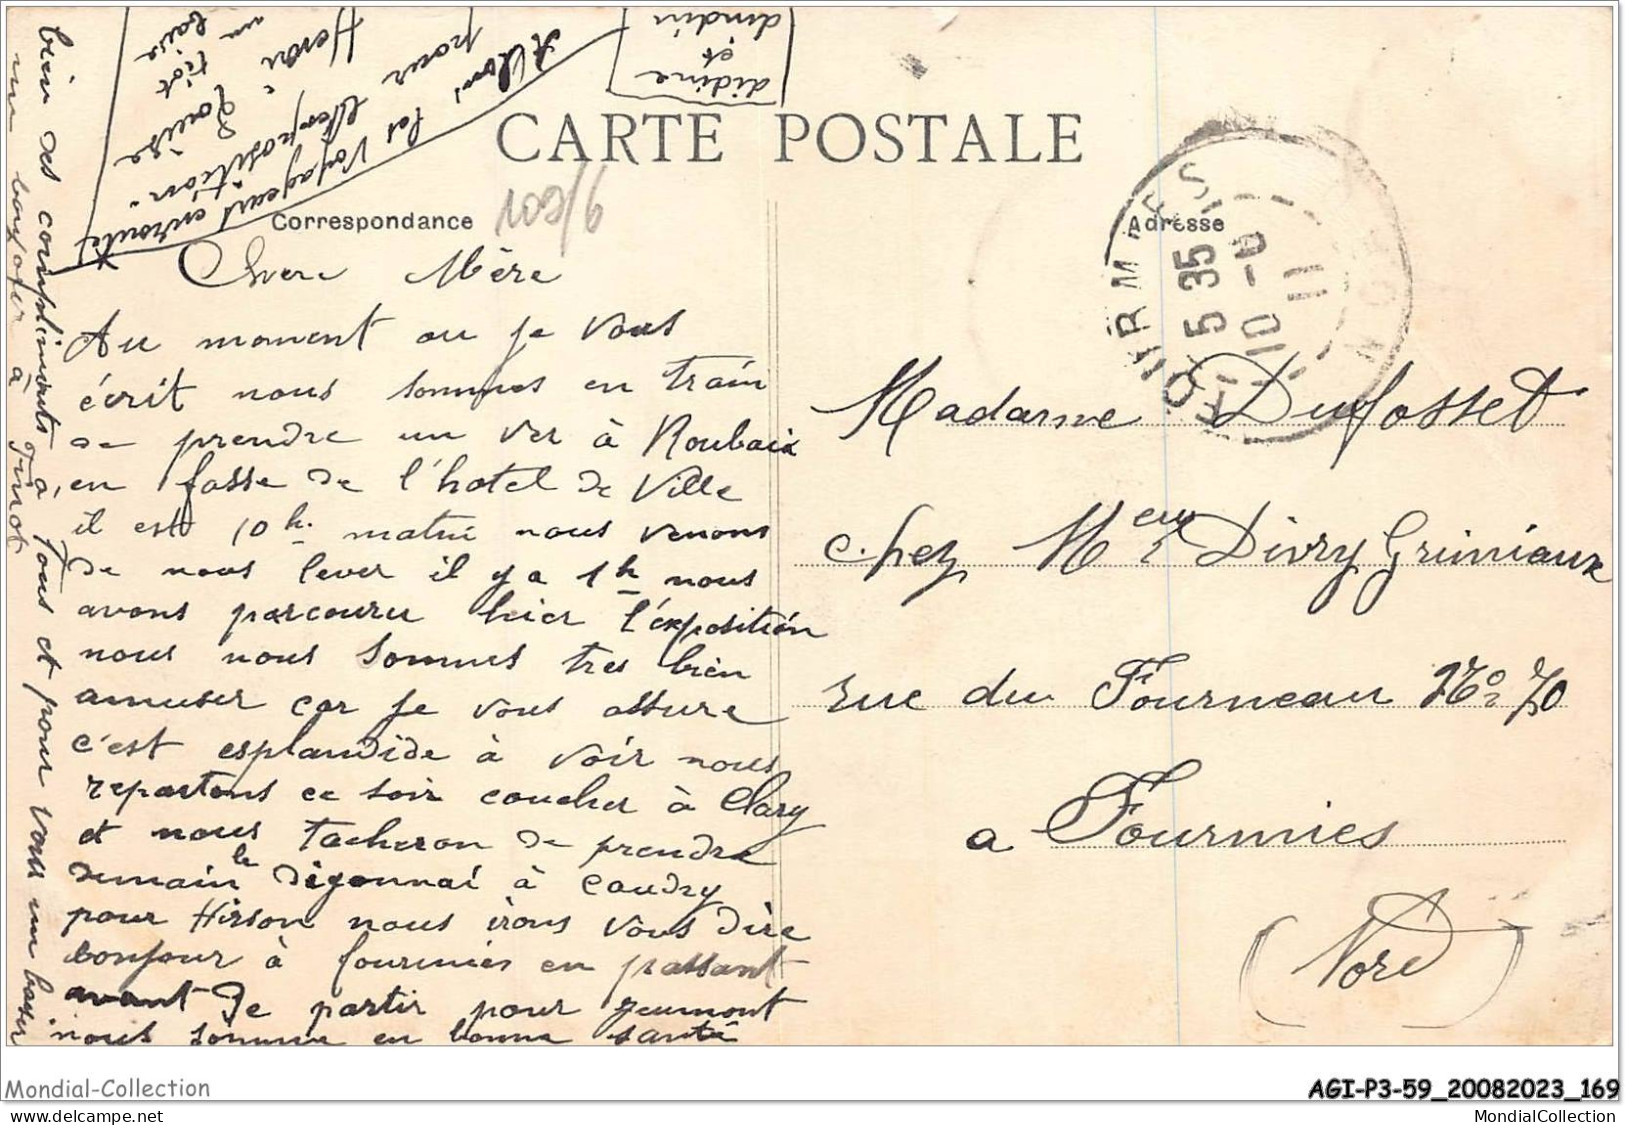 CARTE POSTALE
Correspondance
Adresse
109/6
Chere Mère
Au moment ou je vous
écrit nous sommes en train
de prendre un ver à Roubaix
en fasse de l'hotel de Ville
il est 10 h. matin nous venons
de nous lever il y a 1h nous
avons parcouru hier l'éxposition
nous nous sommes tres bien
amuser car je vous assure
c'est esplandide à voir nous
repartons ce soir coucher à Clary
et nous tacheron de prendre
demain le digennai à Caudry
pour Hirson nous irons vous dire
bonjour à fourmies en passant
avant de partir pour jeumont
nous somme en bonne santé
bien des compliments à tous et pour vous un baser
un bonjour à
Allons
pour l'Exposition.
les Voyageurs en route
Hervé
un tiot
Louise
didine
et
dindin
FOURMIES
5 35
10 -6
11
NORD
Madame Dufosset
chez Meur Divry Griniaux
rue du Fourneau No 70
a Fourmies
(Nord)
Mondial-Collection
AGI-P3-59_20082023_169
www.delcampe.net
MondialCollection